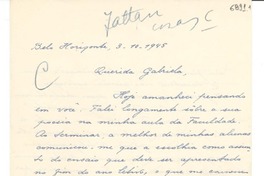 Faltan
6891
C
Belo Horizonte, 3.10.1945
Querida Gabriela,
Hoje amanheci pensando
em você. Falei longamente sôbre a sua
poesia na minha aula da Faculdade.
Ao terminar, a melhor de minhas alunas
comunicou-me que a escolhia como assun-
to do ensaio que deve ser apresentado
no fim do ano letivo, o que me causou